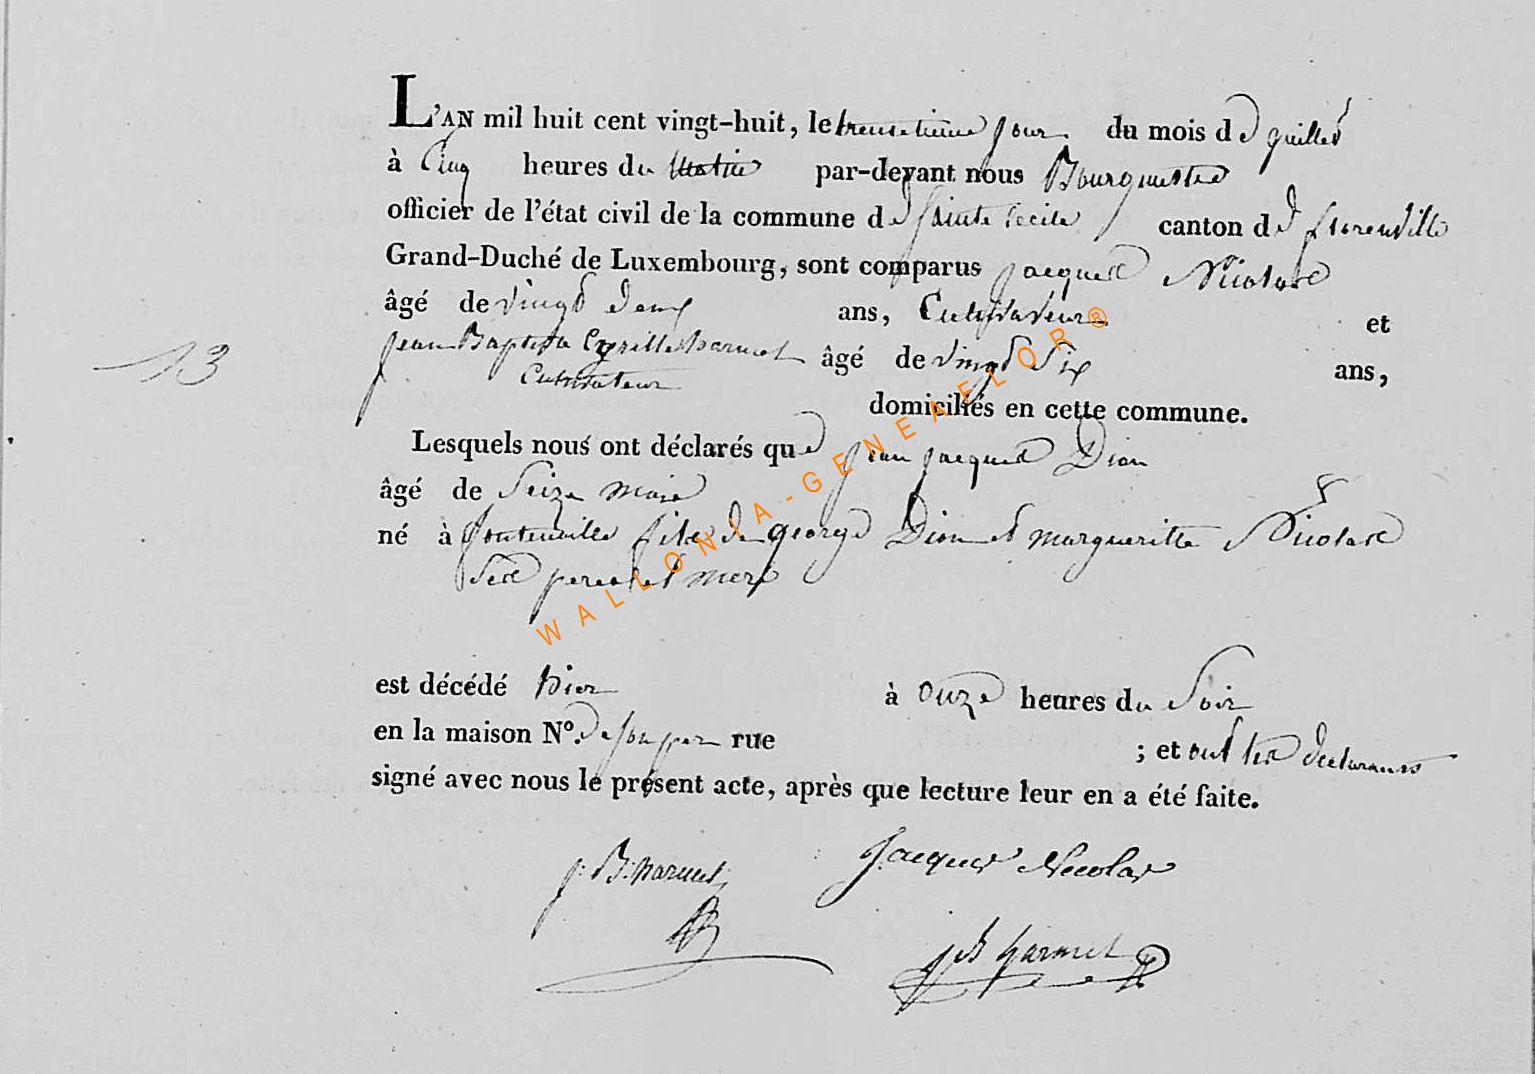 L'AN mil huit cent vingt-huit, le treizieme jour du mois de juillet
à Cinq heures du Matin par-devant nous Bourguestre
officier de l'état civil de la commune de Sainte Cecile canton de florenville
Grand-Duché de Luxembourg, sont comparus jacques Nicolas
âgé de vingt deux ans, Cultivateur et
jean Baptiste Cyrille harmel âgé de vingt Six ans,
13
Cultivateur
domiciliés en cette commune.
Lesquels nous ont déclarés que jean jacques Dion
âgé de Seize mois
né à fontenoille fils de george Dion et margueritte Nicolas
Ses pere et mere
est décédé hier à onze heures du Soir
en la maison N°. de son pere rue ; et ont les declarants
signé avec nous le présent acte, après que lecture leur en a été faite.
j: B: harmel Jacques Nicolas
jB harmel
WALLONIA-GENEAFLOR®